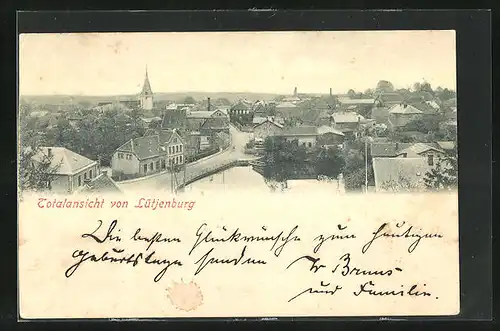 Totalansicht von Lütjenburg
Die besten Glückwünsche zum heutigen
Geburtstage senden
Fr Bruns
und Familie.